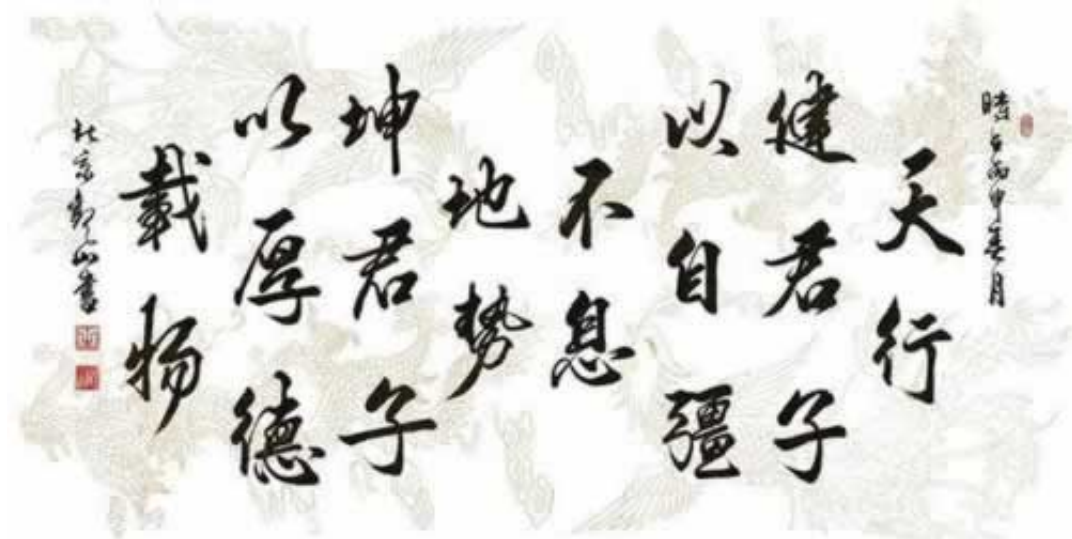 時在丙申春月
天行
健君子
以自彊
不息
地勢
坤君子
以厚德
載物
北京郝山書